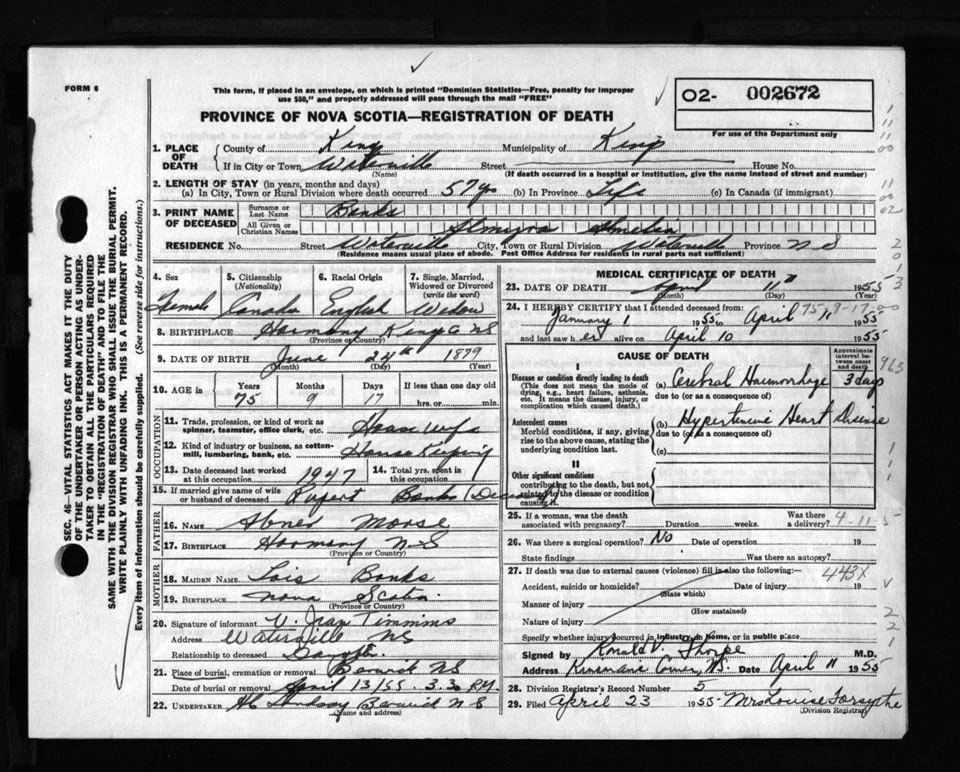 FORM 6
This form, if placed in an envelope, on which is printed "Dominion Statistics—Free, penalty for improper
use $50," and properly addressed will pass through the mail "FREE"
PROVINCE OF NOVA SCOTIA—REGISTRATION OF DEATH
02- 002672
For use of the Department only
SEC. 46—VITAL STATISTICS ACT MAKES IT THE DUTY
OF THE UNDERTAKER OR PERSON ACTING AS UNDER-
TAKER TO OBTAIN ALL THE PARTICULARS REQUIRED
IN THE "REGISTRATION OF DEATH" AND TO FILE THE
SAME WITH THE DIVISION REGISTRAR WHO SHALL ISSUE THE BURIAL PERMIT.
WRITE PLAINLY WITH UNFADING INK. THIS IS A PERMANENT RECORD.
Every item of information should be carefully supplied. (See reverse side for instructions.)
1. PLACE OF DEATH
County of Kings Municipality of Kings
If in City or Town Waterville Street House No.
(Name) (If death occurred in a hospital or institution, give the name instead of street and number)
2. LENGTH OF STAY (in years, months and days)
(a) In City, Town or Rural Division where death occurred 57 yrs (b) In Province Life (c) In Canada (if immigrant)
3. PRINT NAME OF DECEASED
Surname or Last Name Banks
All Given or Christian Names Almira Amelia
RESIDENCE No. Street Waterville City, Town or Rural Division Waterville Province N S
(Residence means usual place of abode. Post Office Address for residents in rural parts not sufficient)
4. Sex 5. Citizenship (Nationality) 6. Racial Origin 7. Single, Married, Widowed or Divorced (write the word)
Female Canadian English Widow
8. BIRTHPLACE Harmony Kings Co NS
(Province or Country)
9. DATE OF BIRTH June 24th 1879
(Month) (Day) (Year)
10. AGE in Years Months Days If less than one day old
75 9 17 hrs. or min.
OCCUPATION
11. Trade, profession, or kind of work as
spinner, teamster, office clerk, etc. House wife
12. Kind of industry or business, as cotton-
mill, lumbering, bank, etc. House Keeping
13. Date deceased last worked at this occupation 1947 14. Total yrs. spent in this occupation
15. If married give name of wife or husband of deceased Rupert Banks (Deceased)
FATHER
16. NAME Abner Morse
17. BIRTHPLACE Harmony N-S
(Province or Country)
MOTHER
18. MAIDEN NAME Lois Banks
19. BIRTHPLACE Nova Scotia
(Province or Country)
20. Signature of informant V. Jean Timmins
Address Waterville NS
Relationship to deceased Daughter
21. Place of burial, cremation or removal Berwick NS
Date of burial or removal April 13/55 3.30 P.M.
22. UNDERTAKER Lindsay Berwick N S
(Name and address)
MEDICAL CERTIFICATE OF DEATH
23. DATE OF DEATH April 11th 1955
(Month) (Day) (Year)
24. I HEREBY CERTIFY that I attended deceased from:
January 1 1955 to April 1955
and last saw her alive on April 10 1955
CAUSE OF DEATH
Approximate interval between onset and death
I
Disease or condition directly leading to death
(This does not mean the mode of
dying, e.g., heart failure, asthenia,
etc. It means the disease, injury, or
complication which caused death.)
(a) Cerebral Haemorrhage 3 days
due to (or as a consequence of)
Antecedent causes
Morbid conditions, if any, giving
rise to the above cause, stating the
underlying condition last.
(b) Hypertensive Heart Disease
due to (or as a consequence of)
(c)
II
Other significant conditions
contributing to the death, but not
related to the disease or condition
causing it.
25. If a woman, was the death
associated with pregnancy? Duration weeks. Was there a delivery? 4-11
26. Was there a surgical operation? No Date of operation 19
State findings Was there an autopsy?
27. If death was due to external causes (violence) fill in also the following:—
443X
Accident, suicide or homicide? Date of injury 19
(State which)
Manner of injury
(How sustained)
Nature of injury
Specify whether injury occurred in industry, in home, or in public place
Signed by Ronald V. Thorpe M.D.
Address N.S. Date April 11 1955
28. Division Registrar's Record Number 5
29. Filed April 23 1955 Mrs Louise Forsythe
(Division Registrar)